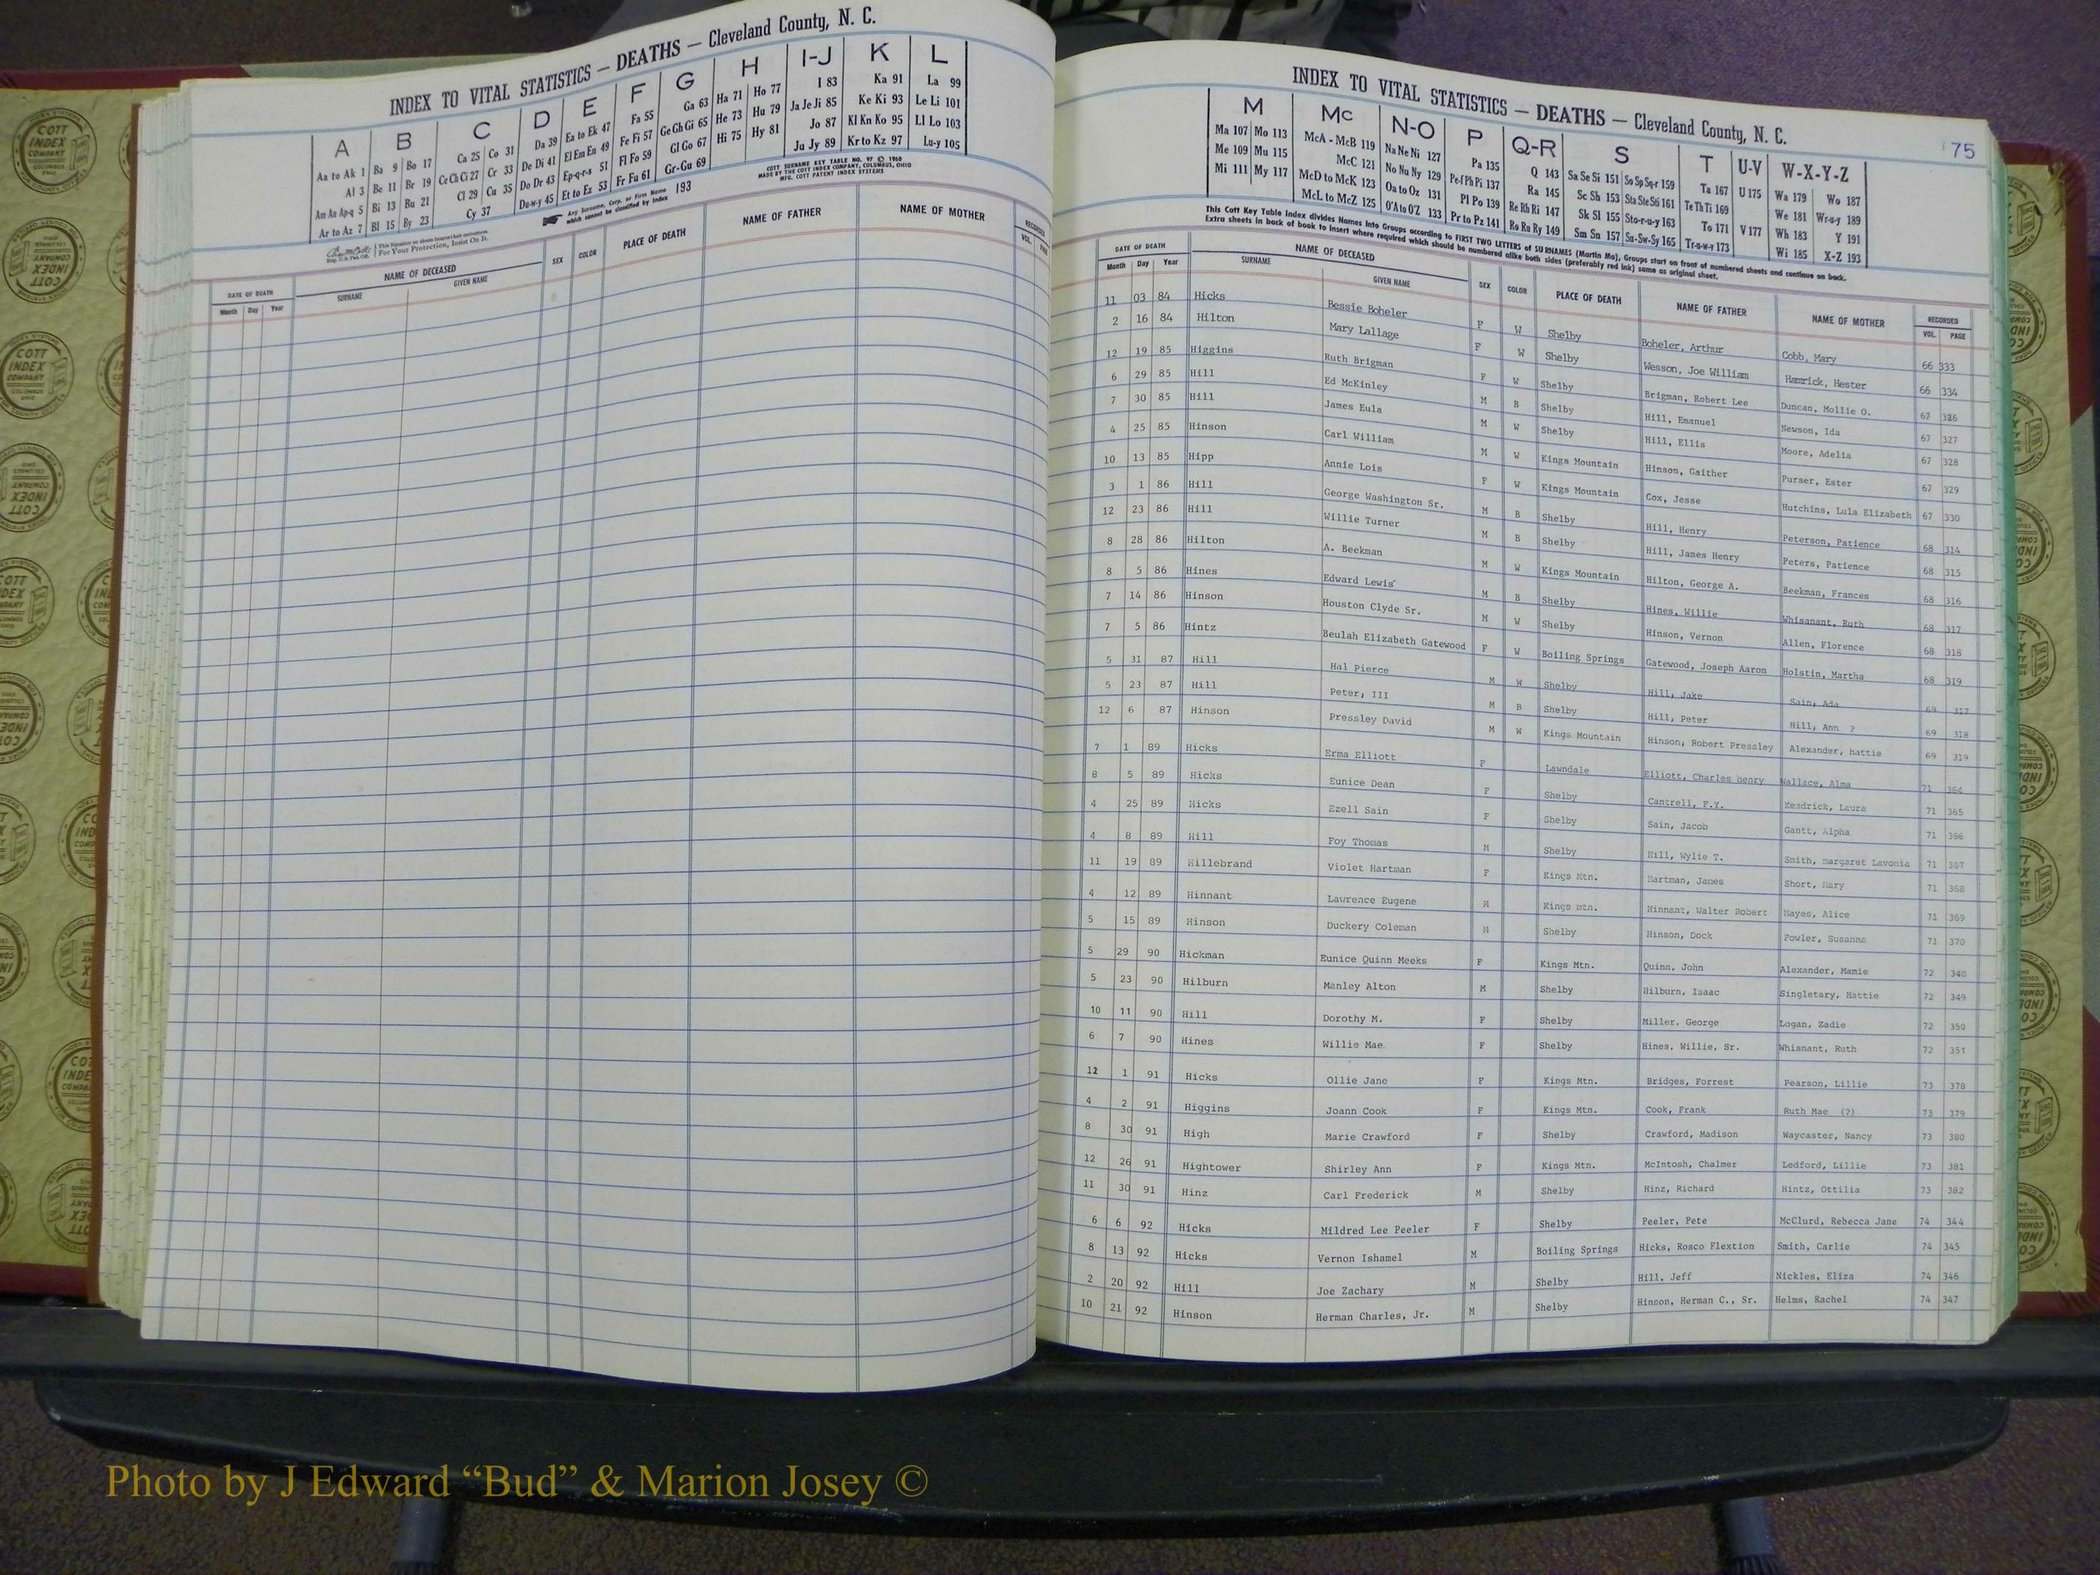 INDEX TO VITAL STATISTICS — DEATHS — Cleveland County, N. C.
A B C D E F G H I-J K L
Aa to Ak 1 Ba 9 Bo 17 Ca 25 Co 31 Da 39 Ea to Ek 47 Fa 55 Ga 63 Ha 71 Ho 77 I 83 Ka 91 La 99
Al 3 Be 11 Br 19 Ce Ch Ci 27 Cr 33 De Di 41 El Em En 49 Fe Fi 57 Ge Gh Gi 65 He 73 Hu 79 Ja Je Ji 85 Ke Ki 93 Le Li 101
Am An Ap-q 5 Bi 13 Bu 21 Cl 29 Cu 35 Do Dr 43 Ep-q-r-s 51 Fl Fo 59 Gl Go 67 Hi 75 Hy 81 Jo 87 Kl Kn Ko 95 Ll Lo 103
Ar to Az 7 Bl 15 By 23 Cy 37 Du-w-y 45 Et to Ez 53 Fr Fu 61 Gr-Gu 69 Ju Jy 89 Kr to Kz 97 Lu-y 105
COTT SURNAME KEY TABLE NO. 97 © 1960
MADE BY THE COTT INDEX COMPANY, COLUMBUS, OHIO
MFG. COTT PATENT INDEX SYSTEMS
Any Surname, Corp. or Firm Name 193
which cannot be classified by Index
For Your Protection, Insist On It.
DATE OF DEATH NAME OF DECEASED SEX COLOR PLACE OF DEATH NAME OF FATHER NAME OF MOTHER RECORDED
Month Day Year SURNAME GIVEN NAME VOL. PAGE
INDEX TO VITAL STATISTICS — DEATHS — Cleveland County, N. C.
75
M Mc N-O P Q-R S T U-V W-X-Y-Z
Ma 107 Mo 113 McA - McB 119 Na Ne Ni 127 Pa 135 Q 143 Sa Se Si 151 So Sp Sq-r 159 Ta 167 U 175 Wa 179 Wo 187
Me 109 Mu 115 McC 121 No Nu Ny 129 Pe-f Ph Pi 137 Ra 145 Sc Sh 153 Sta Ste Sti 161 Te Th Ti 169 We 181 Wr-u-y 189
Mi 111 My 117 McD to McK 123 Oa to Oz 131 Pl Po 139 Re Rh Ri 147 Sk Sl 155 Sto-r-u-y 163 To 171 V 177 Wh 183 Y 191
McL to McZ 125 O'A to O'Z 133 Pr to Pz 141 Ro Ru Ry 149 Sm Sn 157 Su-Sw-Sy 165 Tr-u-w-y 173 Wi 185 X-Z 193
This Cott Key Table Index divides Names into Groups according to FIRST TWO LETTERS of SURNAMES (Martin Ma), Groups start on front of numbered sheets and continue on back.
Extra sheets in back of book to insert where required which should be numbered alike both sides (preferably red ink) same as original sheet.
DATE OF DEATH NAME OF DECEASED SEX COLOR PLACE OF DEATH NAME OF FATHER NAME OF MOTHER RECORDED
Month Day Year SURNAME GIVEN NAME VOL. PAGE
11 03 84 Hicks Bessie Boheler F W Shelby Boheler, Arthur Cobb, Mary 66 333
2 16 84 Hilton Mary Lallage F W Shelby Wesson, Joe William Hamrick, Hester 66 334
12 19 85 Higgins Ruth Brigman F W Shelby Brigman, Robert Lee Duncan, Mollie O. 67 326
6 29 85 Hill Ed McKinley M B Shelby Hill, Emanuel Newson, Ida 67 327
7 30 85 Hill James Eula M W Shelby Hill, Ellis Moore, Adelia 67 328
4 25 85 Hinson Carl William M W Kings Mountain Hinson, Gaither Purser, Ester 67 329
10 13 85 Hipp Annie Lois F W Kings Mountain Cox, Jesse Hutchins, Lula Elizabeth 67 330
3 1 86 Hill George Washington Sr. M B Shelby Hill, Henry Peterson, Patience 68 314
12 23 86 Hill Willie Turner M B Shelby Hill, James Henry Peters, Patience 68 315
8 28 86 Hilton A. Beekman M W Kings Mountain Hilton, George A. Beekman, Frances 68 316
8 5 86 Hines Edward Lewis M B Shelby Hines, Willie Whisanant, Ruth 68 317
7 14 86 Hinson Houston Clyde Sr. M W Shelby Hinson, Vernon Allen, Florence 68 318
7 5 86 Hintz Beulah Elizabeth Gatewood F W Boiling Springs Gatewood, Joseph Aaron Holstin, Martha 68 319
5 31 87 Hill Hal Pierce M W Shelby Hill, Jake Sain, Ada 69 317
5 23 87 Hill Peter, III M B Shelby Hill, Peter Hill, Ann ? 69 318
12 6 87 Hinson Pressley David M W Kings Mountain Hinson, Robert Pressley Alexander, hattie 69 319
7 1 89 Hicks Erma Elliott F Lawndale Elliott, Charles henry Wallace, Alma 71 364
8 5 89 Hicks Eunice Dean F Shelby Cantrell, F.Y. Kendrick, Laura 71 365
4 25 89 Hicks Ezell Sain F Shelby Sain, Jacob Gantt, Alpha 71 366
4 8 89 Hill Foy Thomas M Shelby Hill, Wylie T. Smith, margaret Lavonia 71 367
11 19 89 Hillebrand Violet Hartman F Kings Mtn. Hartman, James Short, Mary 71 368
4 12 89 Hinnant Lawrence Eugene M Kings mtn. Hinnant, Walter Robert Hayes, Alice 71 369
5 15 89 Hinson Duckery Coleman M Shelby Hinson, Dock Fowler, Susanna 71 370
5 29 90 Hickman Eunice Quinn Meeks F Kings Mtn. Quinn, John Alexander, Mamie 72 348
5 23 90 Hilburn Manley Alton M Shelby Hilburn, Isaac Singletary, Hattie 72 349
10 11 90 Hill Dorothy M. F Shelby Miller, George Logan, Zadie 72 350
6 7 90 Hines Willie Mae F Shelby Hines, Willie, Sr. Whisnant, Ruth 72 351
12 1 91 Hicks Ollie Jane F Kings Mtn. Bridges, Forrest Pearson, Lillie 73 378
4 2 91 Higgins Joann Cook F Kings Mtn. Cook, Frank Ruth Mae (?) 73 379
8 30 91 High Marie Crawford F Shelby Crawford, Madison Waycaster, Nancy 73 380
12 26 91 Hightower Shirley Ann F Kings Mtn. McIntosh, Chalmer Ledford, Lillie 73 381
11 30 91 Hinz Carl Frederick M Shelby Hinz, Richard Hintz, Ottilia 73 382
6 6 92 Hicks Mildred Lee Peeler F Shelby Peeler, Pete McClurd, Rebecca Jane 74 344
8 13 92 Hicks Vernon Ishamel M Boiling Springs Hicks, Rosco Flextion Smith, Carlie 74 345
2 20 92 Hill Joe Zachary M Shelby Hill, Jeff Nickles, Eliza 74 346
10 21 92 Hinson Herman Charles, Jr. M Shelby Hinson, Herman C., Sr. Helms, Rachel 74 347
Photo by J Edward “Bud” & Marion Josey ©